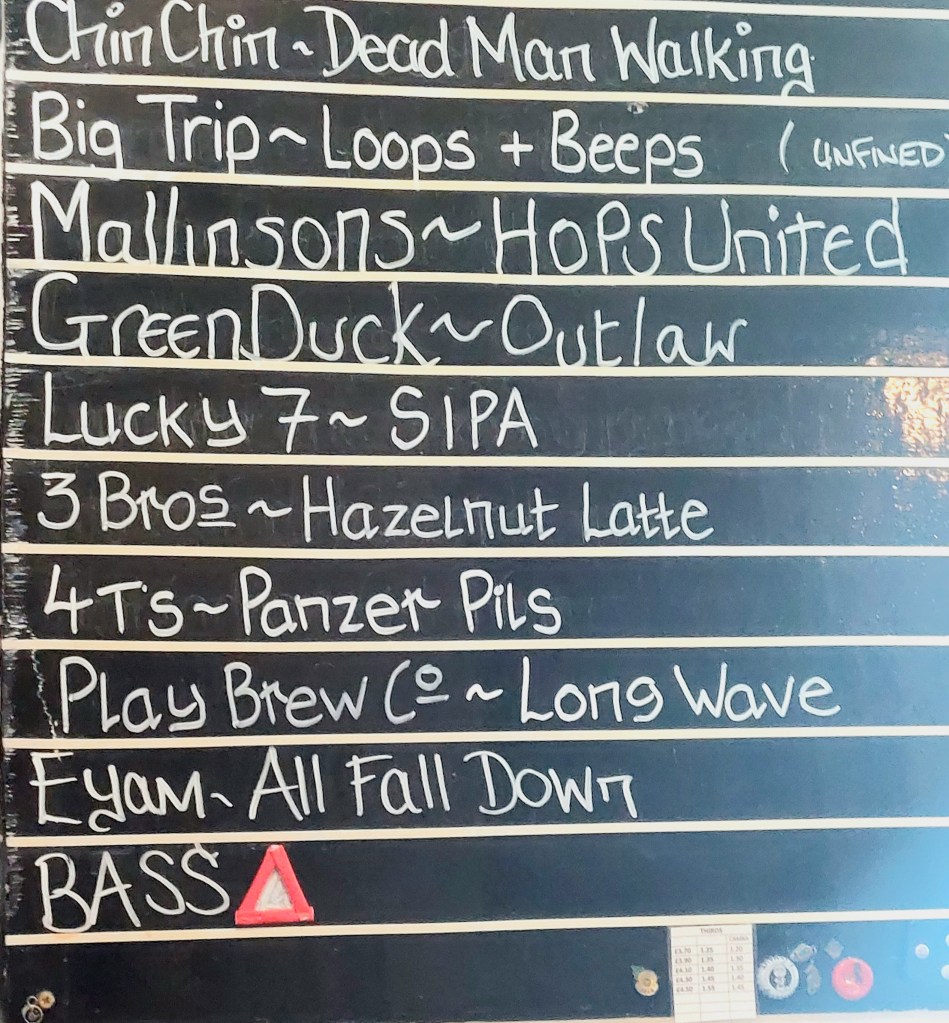 ChinChin ~ Dead Man Walking
Big Trip ~ Loops + Beeps ( UNFINED
Mallinsons ~ HoPS United
GreenDuck ~ Outlaw
Lucky 7 ~ SIPA
3 Bros ~ Hazelnut Latte
4T's ~ Panzer Pils
Play Brew Co ~ Long Wave
Eyam ~ All Fall Down
BASS
THIRDS